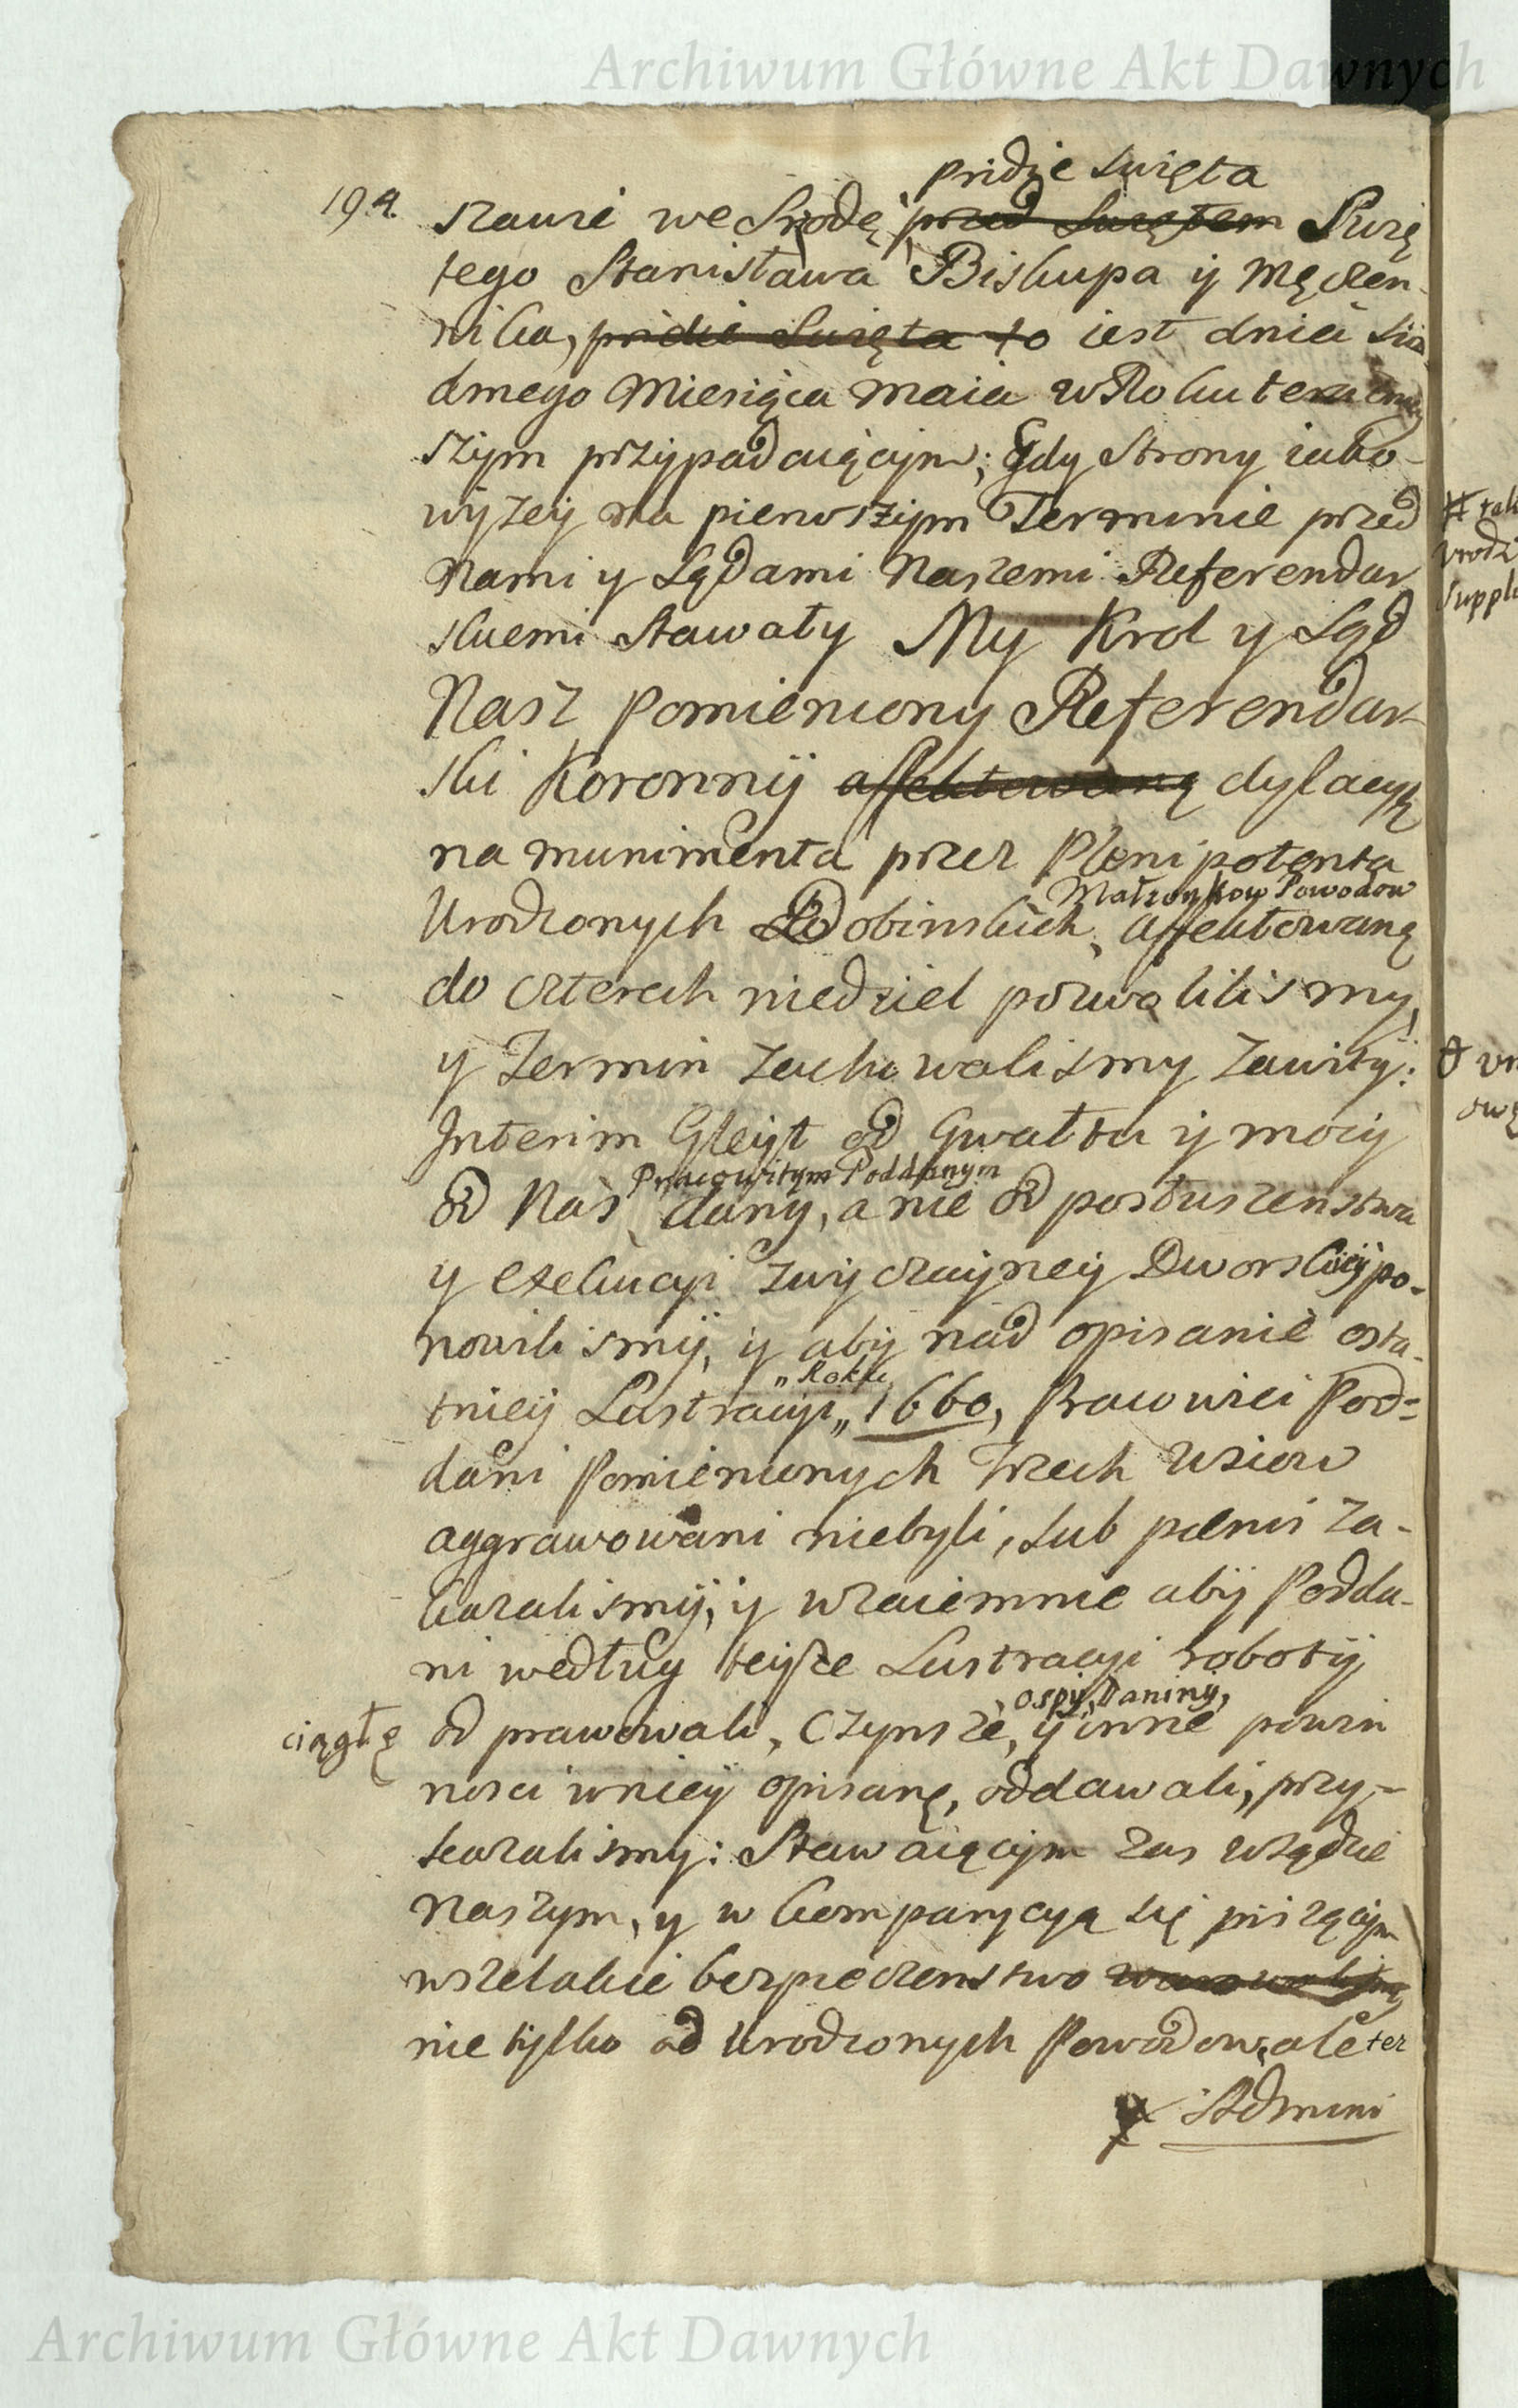 Archiwum Główne Akt Dawnych
194.
pridie swięta
szawie we Srodę przed Swiętem Swię
tego Stanisława Biskupa y Męczen-
nika, pridie Swięta to iest dnia sio
dmego Miesiąca Maia w Roku teraznie
szym przypadaiącym; Gdy Strony iako
wyzey na pierwszym Terminie przed
Nami y Sądami Naszemi Referendar
skiemi stawały My Krol y Sąd
Nasz pomieniony Referendar-
ski Koronny affektowaną dylacyą
na munimenta przez Plenipotenta
Małzonkow Powodow
Urodzonych Łobinskich, affektowaną
do czterech niedziel pozwolilismy,
y Termin zachowalismy zawity:
Interim Gleyt od Gwałtu y mocy
Pracowitym Poddanym
od Nas dany, a nie od posłuszenstwa
y exekucyi zwyczayney Dworskiey po-
nowilismy, y aby nad opisanie osta-
„ Roku
tniey Lustracyi „ 1660, Pracowici Pod=
dani pomienionych Trzech Wsiow
aggrawowani niebyli, sub pænis za-
kazalismy, y wzaiemnie aby Podda-
ni według teyze Lustracyi roboty
ospy, Daniny,
ciągłę
od prawowali, Czynsze, y inne powin
nosci w niey opisanę, oddawali, przy-
kazalismy: Stawaiącym zas w Sądzie
Naszym, y w Komparycyą się piszącym
wszelakie bezpieczenstwo warowalismy
nie tylko od Urodzonych Powodow, ale tez
y Admini
Archiwum Główne Akt Dawnych